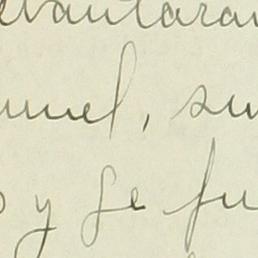 evantaran
unuel, su
y ge fu